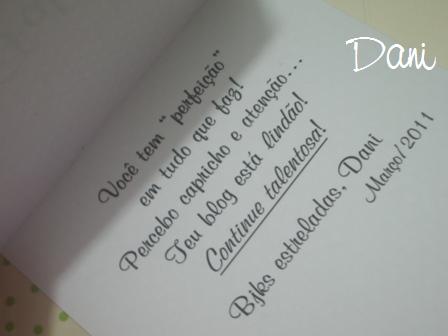 Dani
Você tem "perfeição"
em tudo que faz!
Percebo capricho e atenção...
Teu blog está lindão!
Continue talentosa!
Bjks estreladas, Dani
Março/2011